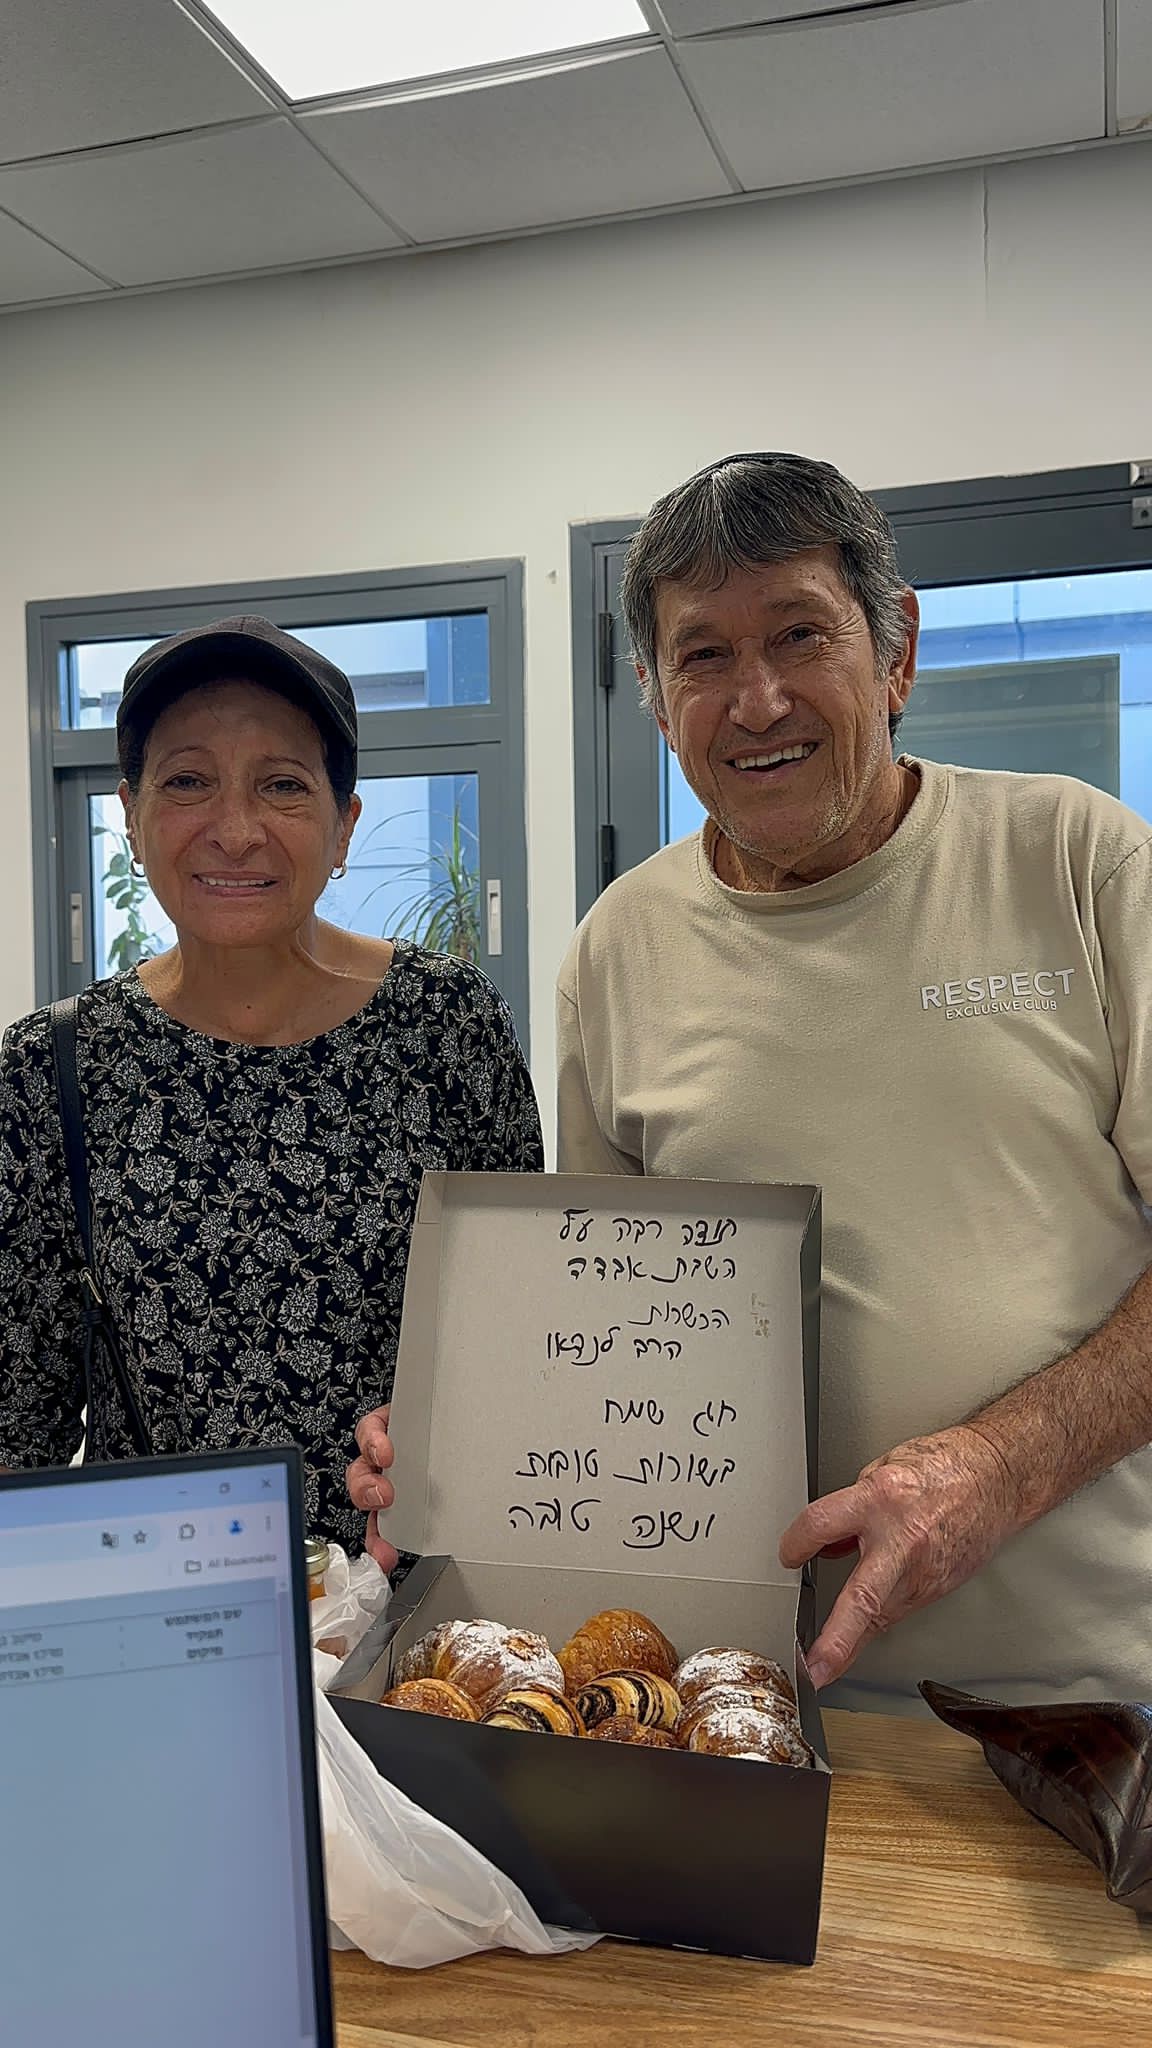 RESPECT
EXCLUSIVE CLUB
תודה רבה על
השבת אבדה
הכשרות
הרב לנדאו
חג שמח
בשורות טובות
ושנה טובה
All Bookmarks
שם המשתמש
תפקיד
מיקום